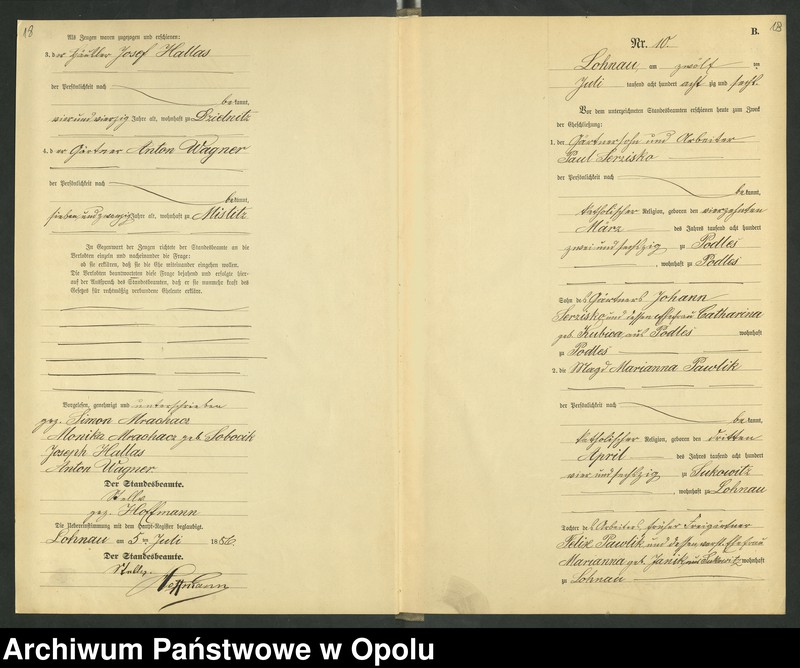 18
Als Zeugen waren zugezogen und erschienen:
3. der Häusler Josef Hallas
der Persönlichkeit nach
bekannt,
vierundvierzig Jahre alt, wohnhaft zu Dzielnitz
4. der Gärtner Anton Wagner
der Persönlichkeit nach
bekannt,
siebenundzwanzig Jahre alt, wohnhaft zu Mistitz
In Gegenwart der Zeugen richtete der Standesbeamte an die
Verlobten einzeln und nacheinander die Frage:
ob sie erklären, daß sie die Ehe miteinander eingehen wollen.
Die Verlobten beantworteten diese Frage bejahend und erfolgte hier-
auf der Ausspruch des Standesbeamten, daß er sie nunmehr kraft des
Gesetzes für rechtmäßig verbundene Eheleute erkläre.
Vorgelesen, genehmigt und unterschrieben
gez. Simon Mrachacz
Monika Mrachacz geb. Sobocik
Joseph Hallas
Anton Wagner
Der Standesbeamte.
Stellv.
gez. Hoffmann
Die Uebereinstimmung mit dem Haupt-Register beglaubigt.
Lohnau am 5ten Juli 1886
Der Standesbeamte.
Stellv.
Hoffmann
B.
Nr. 10.
Lohnau, am zwölften
Juli tausend acht hundert achtzig und sechs.
Vor dem unterzeichneten Standesbeamten erschienen heute zum Zweck
der Eheschließung:
1. der Gärtnersohn und Arbeiter
Paul Serzisko
der Persönlichkeit nach
bekannt,
katholischer Religion, geboren den vierzehnten
März des Jahres tausend acht hundert
zweiundsechszig zu Podles
, wohnhaft zu Podles
Sohn des Gärtners Johann
Serzisko und dessen Ehefrau Catharina
geb. Kubica aus Podles wohnhaft
zu Podles
2. die Magd Marianna Pawlik
der Persönlichkeit nach
bekannt,
katholischer Religion, geboren den dritten
April des Jahres tausend acht hundert
vierundsechszig zu Sukowitz
, wohnhaft zu Lohnau
Tochter des Arbeiters, früher Freigärtner
Felix Pawlik und dessen verst. Ehefrau
Marianna geb. Janik aus Sukowitz wohnhaft
zu Lohnau
Archiwum Państwowe w Opolu